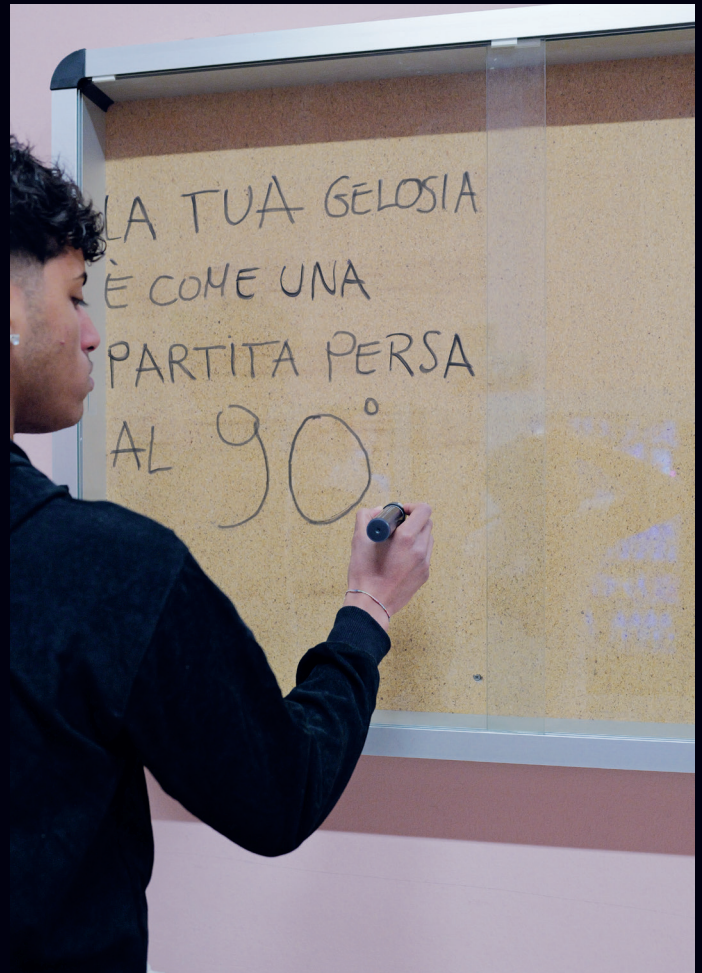 LA TUA GELOSIA
È COME UNA
PARTITA PERSA
AL 90°